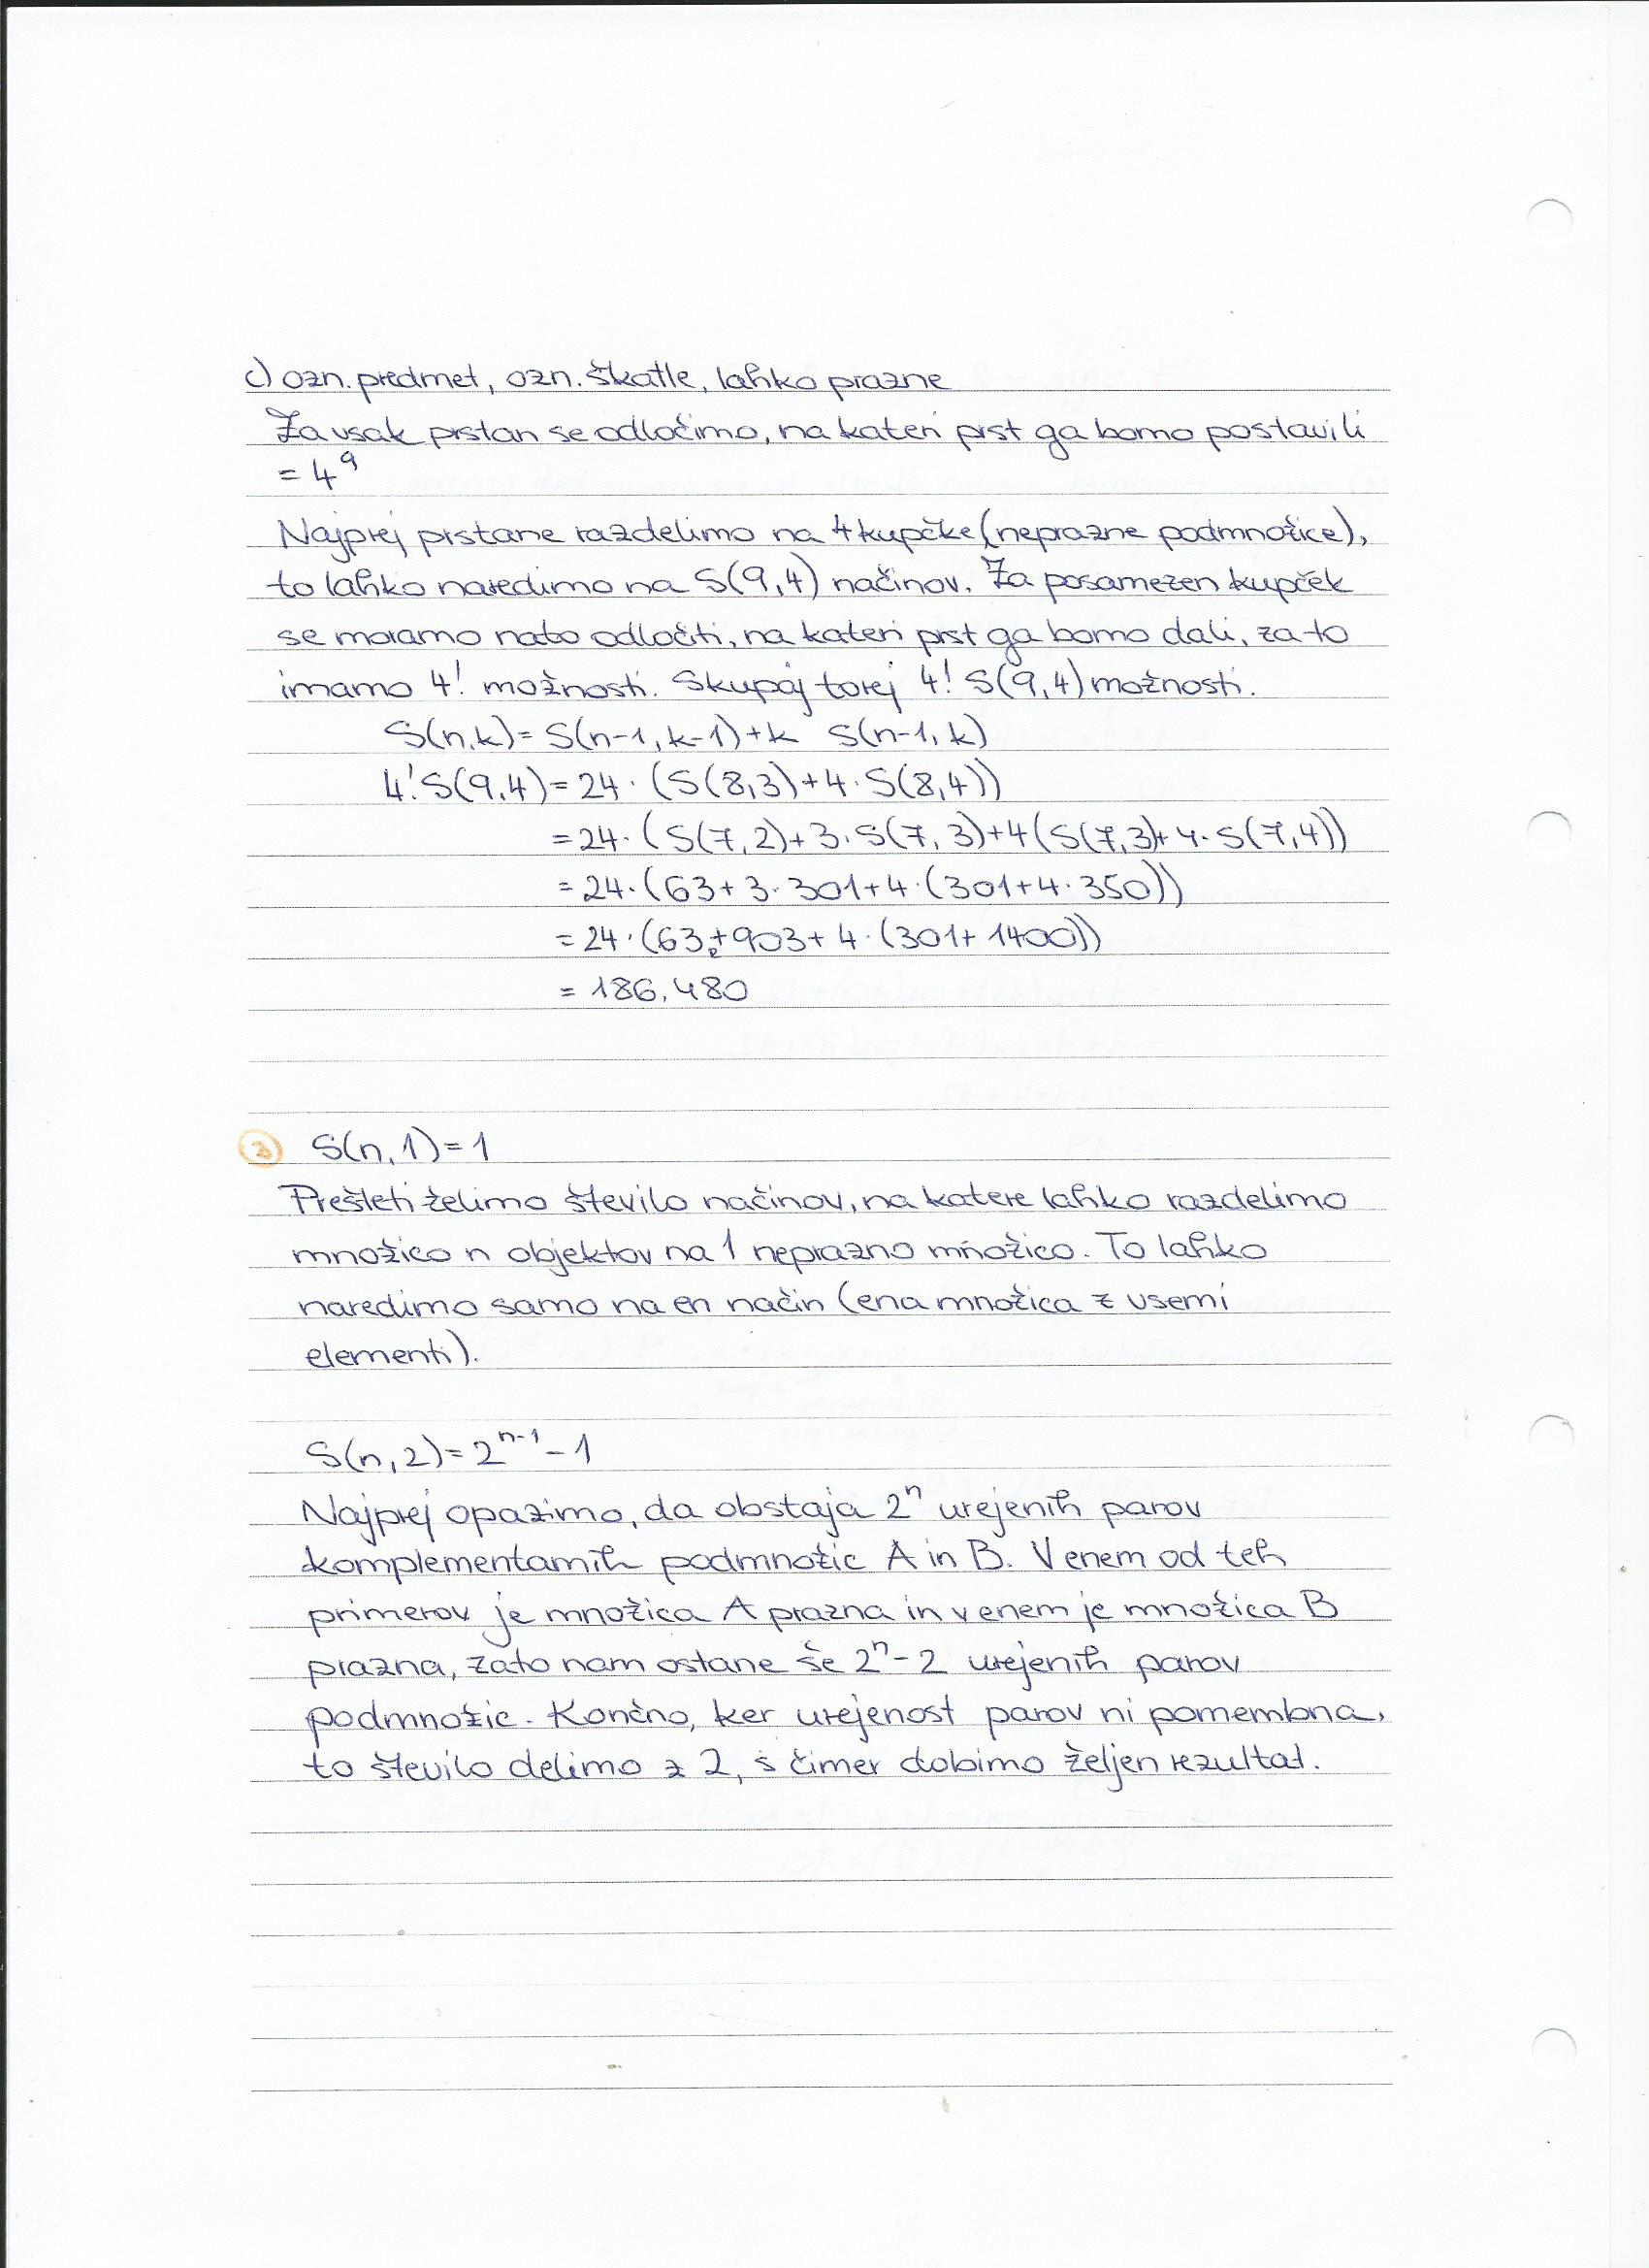 c) ozn. predmet, ozn. škatle, lahko prazne
Za vsak prstan se odločimo, na kateri prst ga bomo postavili
= 4^9
Najprej prstane razdelimo na 4 kupčke (neprazne podmnožice),
to lahko naredimo na S(9,4) načinov. Za posamezen kupček
se moramo nato odločiti, na kateri prst ga bomo dali, za to
imamo 4! možnosti. Skupaj torej 4! S(9,4) možnosti.
S(n,k) = S(n-1, k-1) + k S(n-1, k)
4! S(9,4) = 24 · (S(8,3) + 4 · S(8,4))
= 24 · (S(7,2) + 3 · S(7,3) + 4(S(7,3) + 4 · S(7,4))
= 24 · (63 + 3 · 301 + 4 · (301 + 4 · 350))
= 24 · (63 + 903 + 4 · (301 + 1400))
= 186.480
3 S(n,1) = 1
Prešteti želimo število načinov, na katere lahko razdelimo
množico n objektov na 1 neprazno množico. To lahko
naredimo samo na en način (ena množica z vsemi
elementi).
S(n,2) = 2^(n-1) - 1
Najprej opazimo, da obstaja 2^n urejenih parov
komplementarnih podmnožic A in B. V enem od teh
primerov je množica A prazna in v enem je množica B
prazna, zato nam ostane še 2^n - 2 urejenih parov
podmnožic. Končno, ker urejenost parov ni pomembna,
to število delimo z 2, s čimer dobimo željen rezultat.